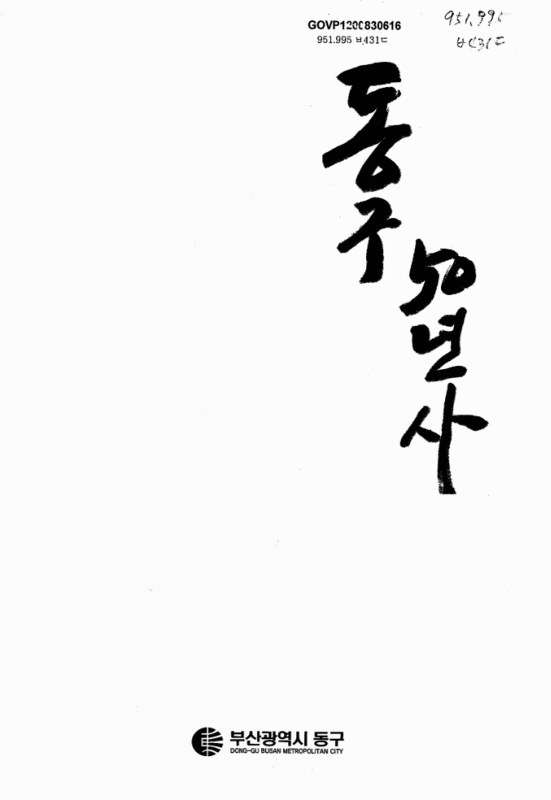 GOVP1200830616
951.995 ㅂ431ㄷ
951.995
ㅂ431ㄷ
동구
50년사
부산광역시 동구
DONG-GU BUSAN METROPOLITAN CITY